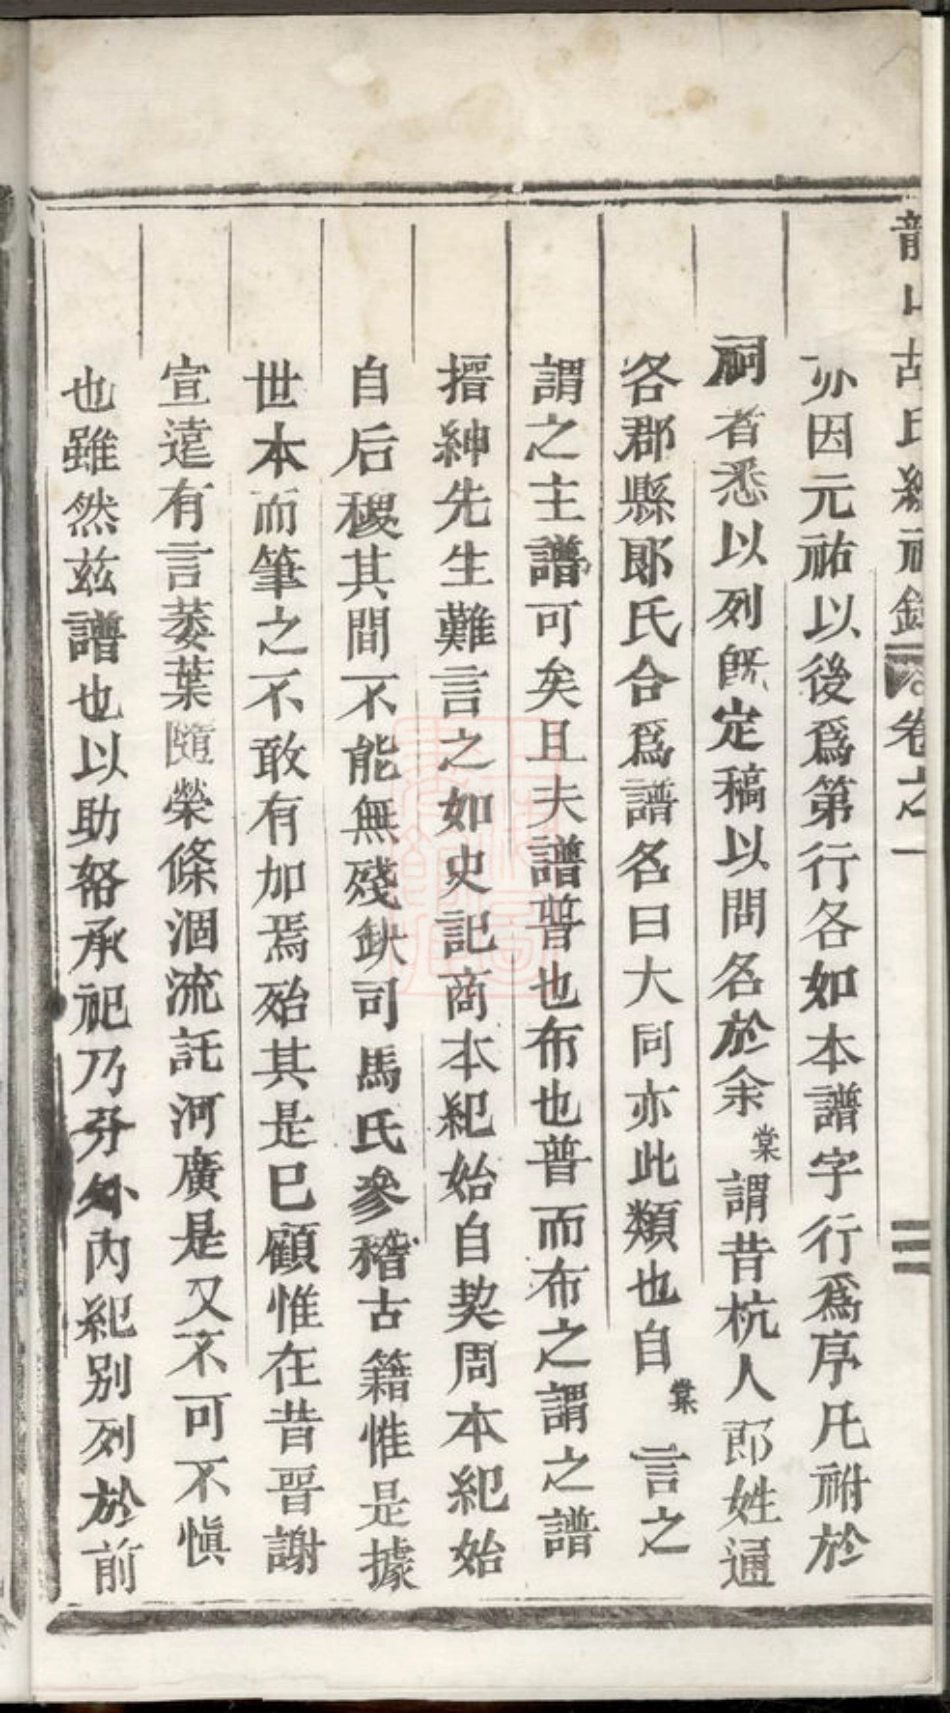 龍山胡氏總祠錄 卷之一 三
亦因元祐以後爲第行各如本譜字行爲序凡祔於
嗣者悉以列旣定稿以問名於余棠謂昔杭人郎姓通
各郡縣郎氏合爲譜名曰大同亦此類也自棠言之
謂之主譜可矣且夫譜普也布也普而布之謂之譜
搢紳先生難言之如史記商本紀始自契周本紀始
自后稷其間不能無殘缺司馬氏參稽古籍惟是據
世本而筆之不敢有加焉殆其是巳顧惟在昔晋謝
宣遠有言萎葉隨榮條涸流託河廣是又不可不愼
也雖然兹譜也以助帑承祀乃分外内紀别列於前